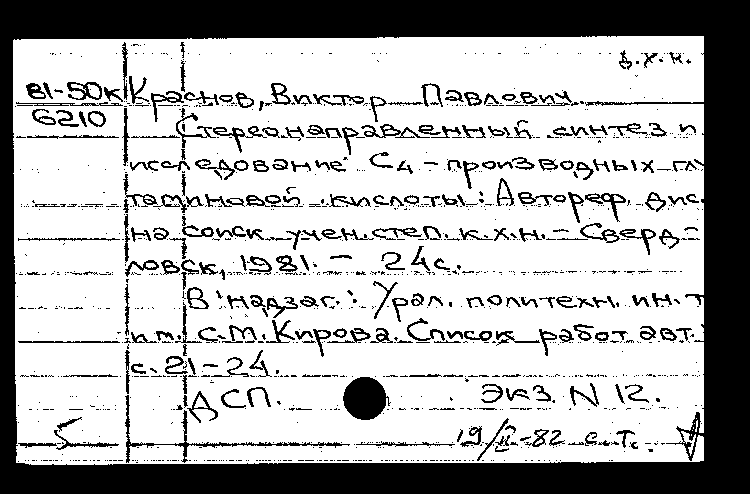 д.х.н.
81-50к Краснов, Виктор Павлович.
6210 Стереонаправленный синтез и
исследование С4-производных глу
таминовой кислоты: Автореф. дис.
на соиск. учен. степ. к.х.н. - Сверд-
ловск, 1981. - 24с.
В надзаг.: Урал. политехн. ин. т
им. С.М. Кирова. Список работ авт.:
с. 21-24.
ДСП. Экз. N 12.
5 19/II-82